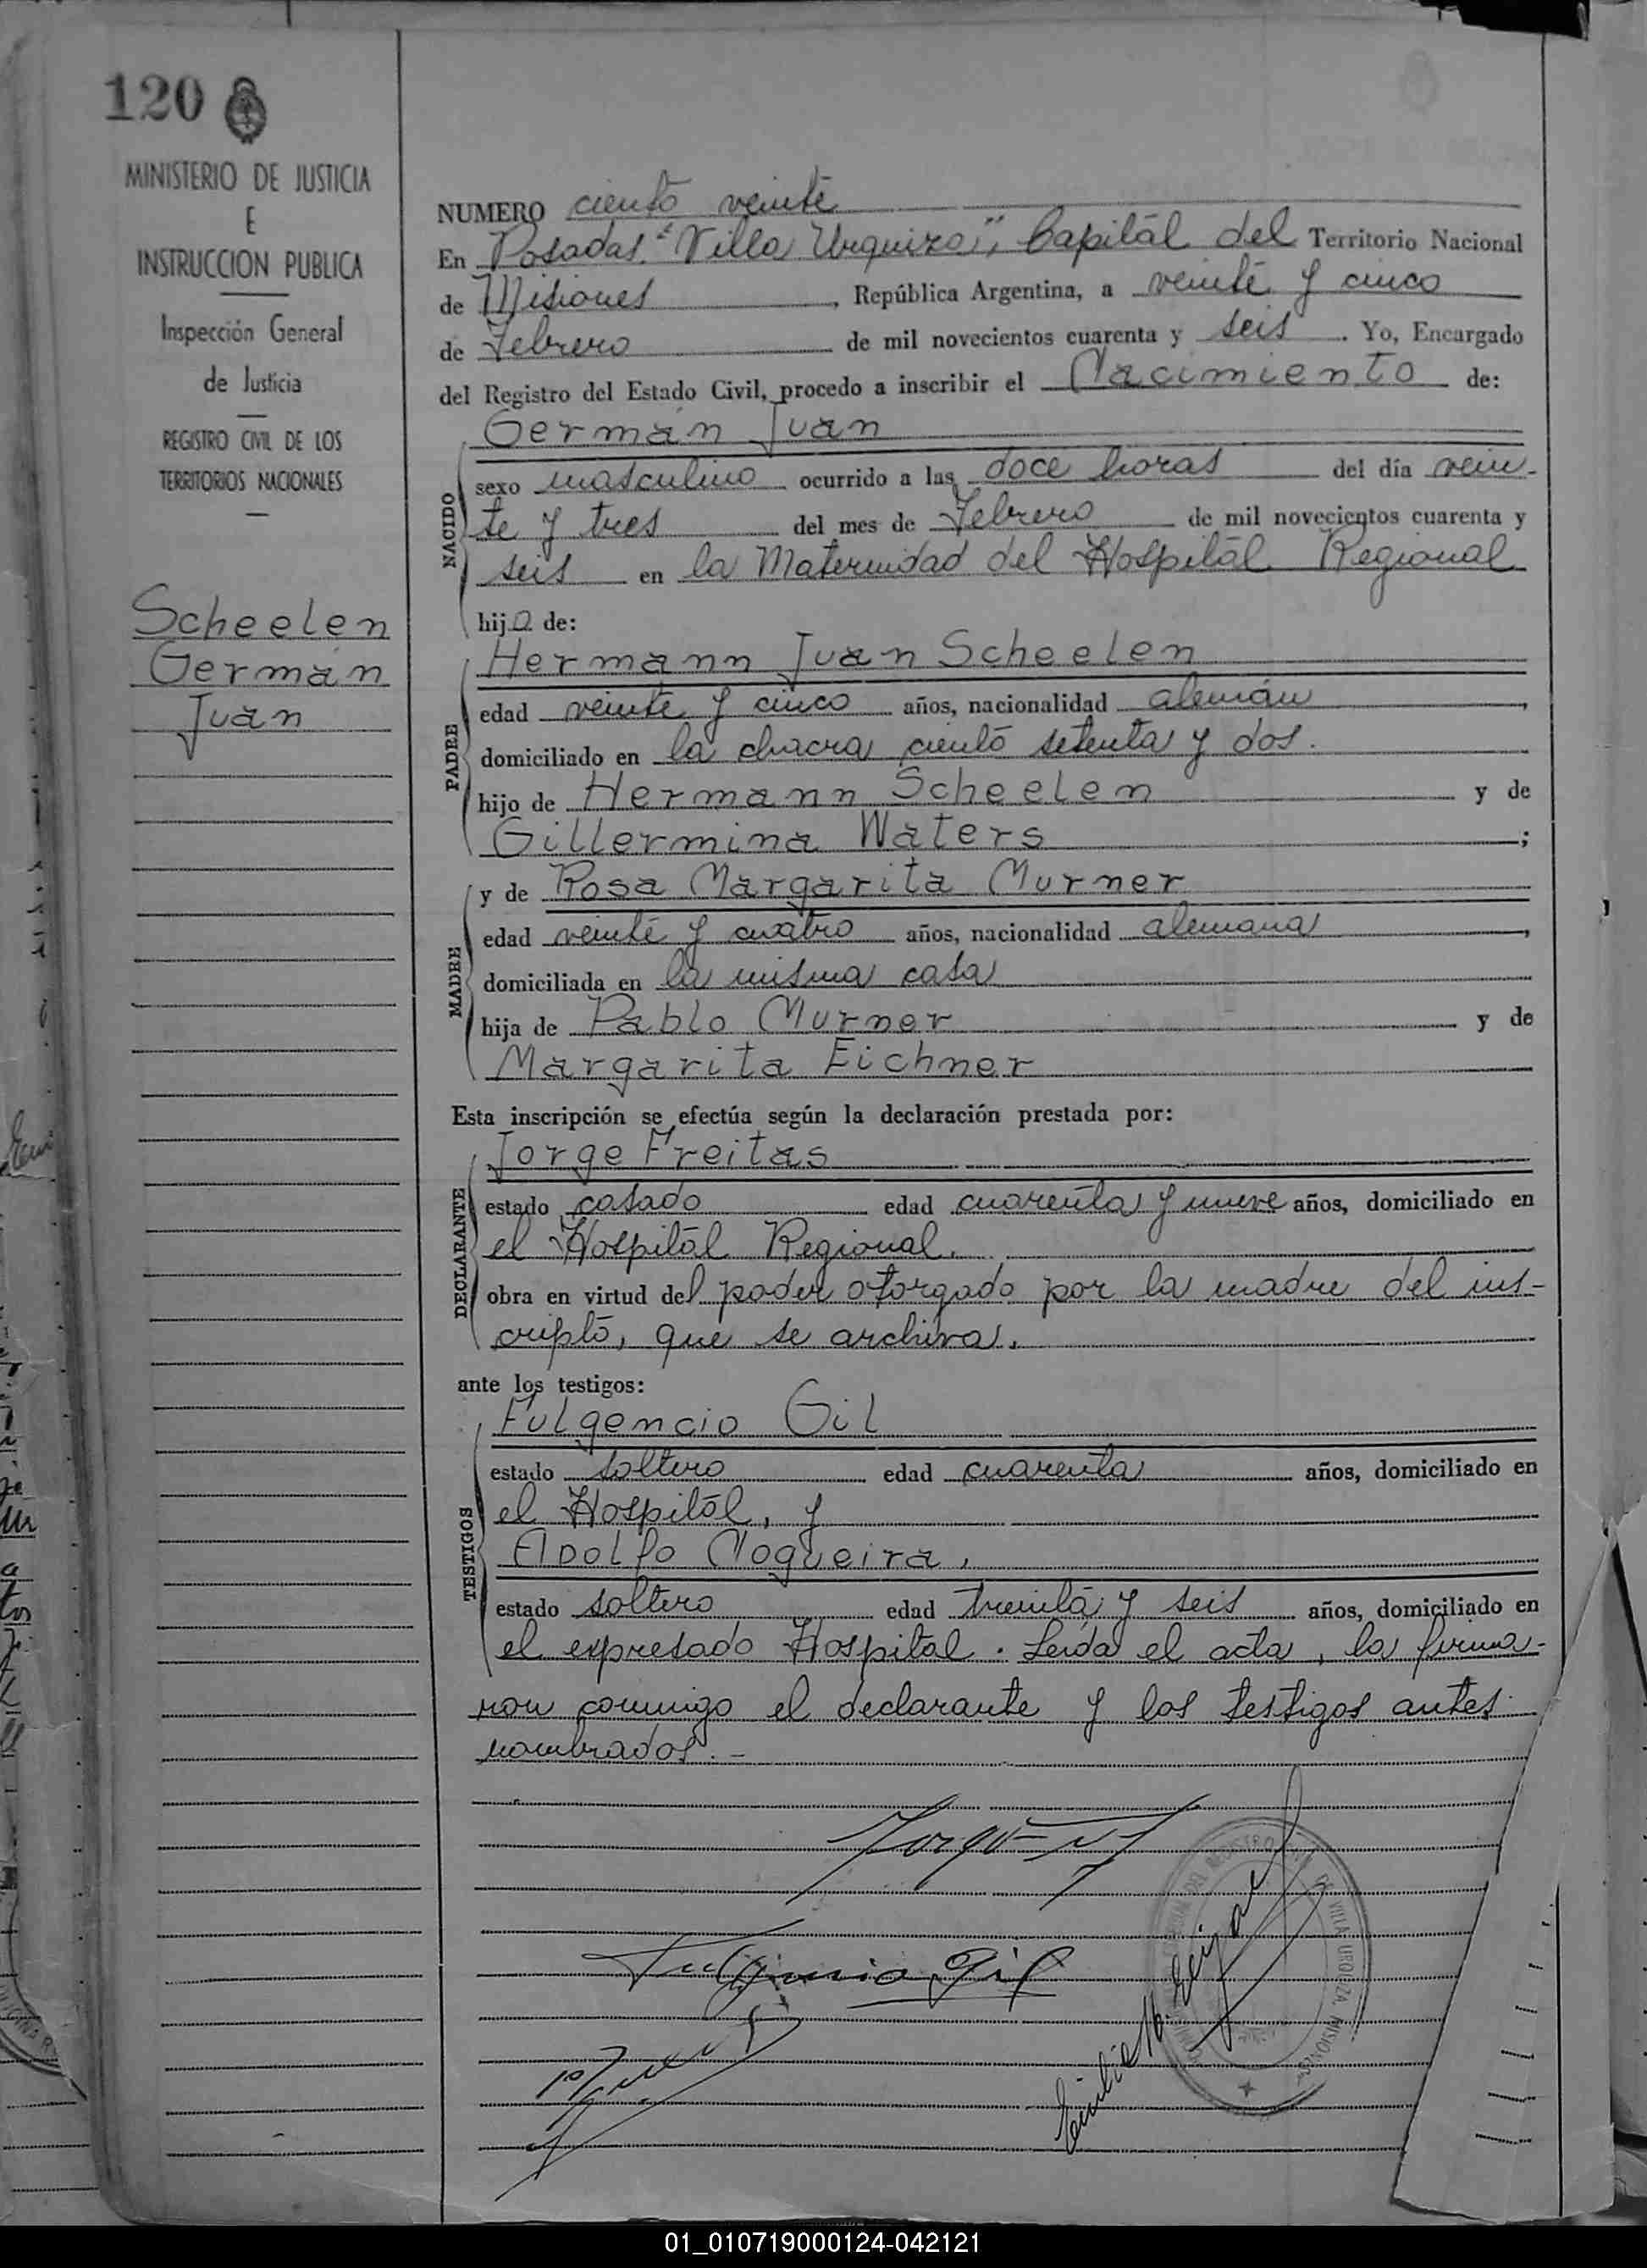 120
MINISTERIO DE JUSTICIA
E
INSTRUCCION PUBLICA
Inspección General
de Justicia
REGISTRO CIVIL DE LOS
TERRITORIOS NACIONALES
Scheelen
Germán
Juan
NUMERO ciento veinte
En Posadas "Villa Urquiza", Capital del Territorio Nacional
de Misiones, República Argentina, a veinte y cinco
de Febrero de mil novecientos cuarenta y seis. Yo, Encargado
del Registro del Estado Civil, procedo a inscribir el Nacimiento de:
NACIDO
Germán Juan
sexo masculino ocurrido a las doce horas del día vein-
te y tres del mes de Febrero de mil novecientos cuarenta y
seis en la Maternidad del Hospital Regional
hijo de:
PADRE
Hermann Juan Scheelen
edad veinte y cinco años, nacionalidad alemán,
domiciliado en la chacra ciento setenta y dos.
hijo de Hermann Scheelen y de
Gillermina Waters;
MADRE
y de Rosa Margarita Murner
edad veinte y cuatro años, nacionalidad alemana,
domiciliada en la misma casa
hija de Pablo Murner y de
Margarita Eichner
Esta inscripción se efectúa según la declaración prestada por:
DECLARANTE
Jorge Freitas
estado casado edad cuarenta y nueve años, domiciliado en
el Hospital Regional.
obra en virtud del poder otorgado por la madre del ins-
cripto, que se archiva.
ante los testigos:
TESTIGOS
Fulgencio Gil
estado soltero edad cuarenta años, domiciliado en
el Hospital, y
Adolfo Nogueira,
estado soltero edad treinta y seis años, domiciliado en
el expresado Hospital. Leída el acta, la firma-
ron conmigo el declarante y los testigos antes
nombrados.-
Fulgencio Gil
VILLA URQUIZA. MISIONES
01_010719000124-042121